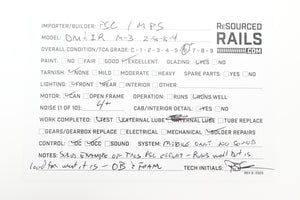 IMPORTER/BUILDER: PSC / MPS
RESOURCED RAILS .COM
MODEL: DM&IR M-3 2-8-8-4
OVERALL CONDITION/TCA GRADE: C-1-2-3-4-5-6-7-8-9
PAINT: NO FAIR GOOD EXCELLENT GLAZING: YES NO
TARNISH: NONE MILD MODERATE HEAVY SPARE PARTS: YES NO
LIGHTING: FRONT REAR INTERIOR OTHER
MOTOR: CAN OPEN FRAME OPERATION: RUNS RUNS WELL
NOISE (1 OF 10): 4+ CAB/INTERIOR DETAIL: YES NO
WORK COMPLETED: TEST EXTERNAL LUBE INTERNAL LUBE TUBE REPLACE
GEARS/GEARBOX REPLACE ELECTRICAL MECHANICAL SOLDER REPAIRS
CONTROL: DC DCC SOUND SYSTEM:
NOTES: SOLID EXAMPLE OF THIS PSC EFFORT - RUNS WELL BUT IS
LOUD FOR WHAT IT IS - OB & FOAM
TECH INITIALS: